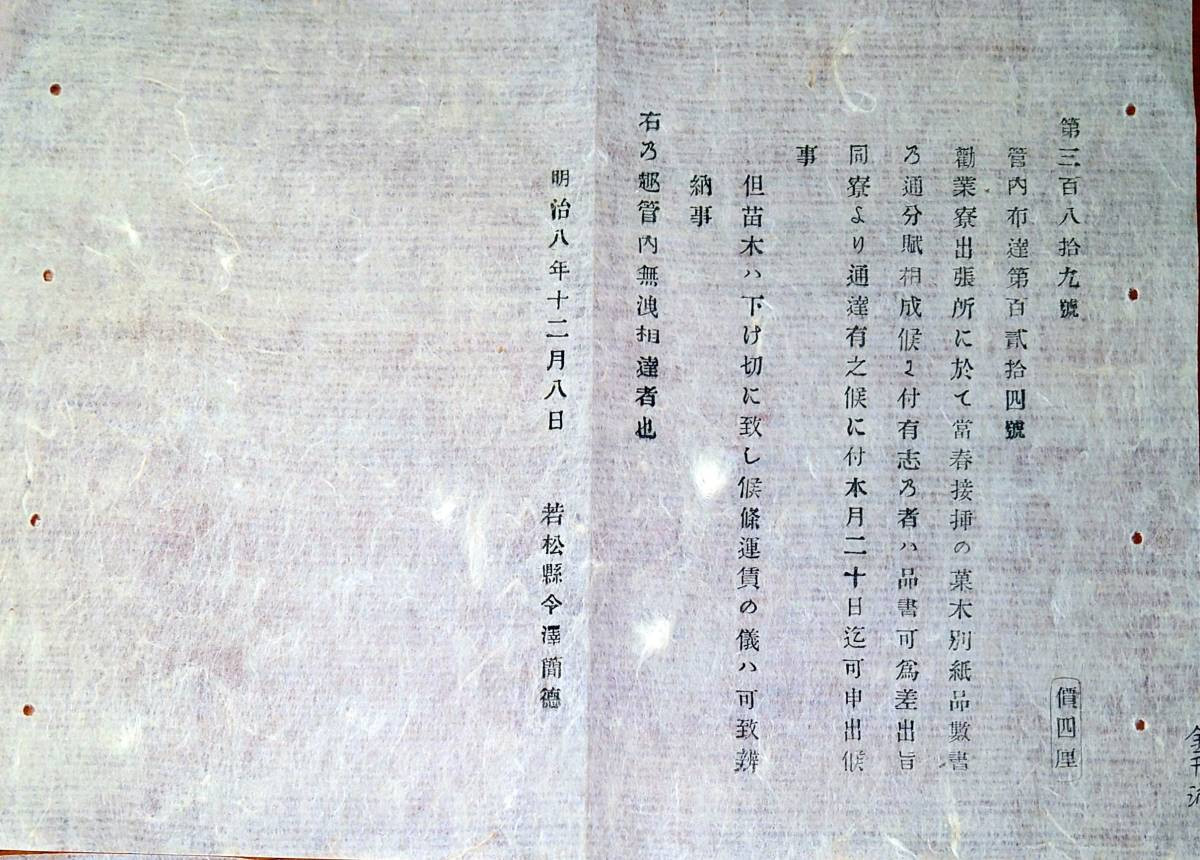 第三百八拾九號
價四厘
管內布達第百貳拾四號
勸業寮出張所に於て當春接揷の菓木別紙品數書
乃通分賦相成候に付有志乃者ハ品書可爲差出旨
同寮より通達有之候に付本月二十日迄可申出候
事
但苗木ハ下け切に致し候條運賃の儀ハ可致辨
納事
右乃趣管內無洩相達者也
明治八年十二月八日 若松縣令澤簡德